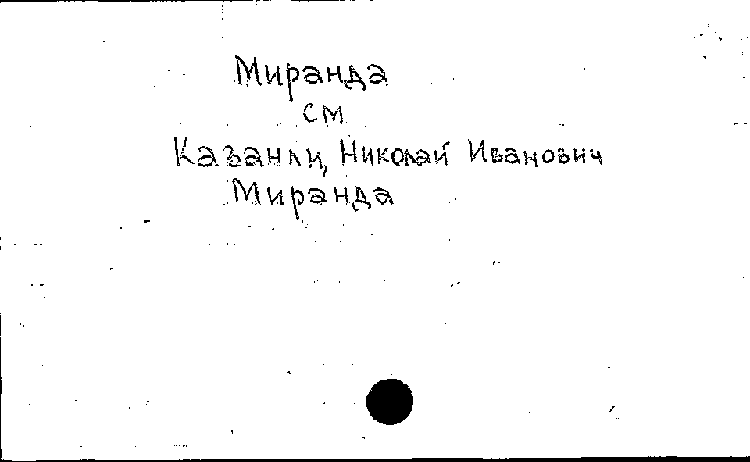 Миранда
см
Казанли, Николай Иванович
Миранда